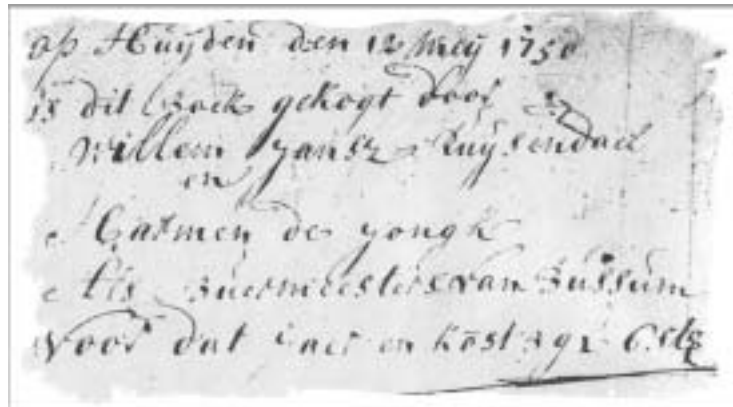 op Huijden den 12 meij 1750
is dit Boek gekogt door
Willem Jansz Ruijsendael
en
Harmen de Jongh
Als Buermeesters van Bussum
voor dat Jaer en kost 3 gl 6 st